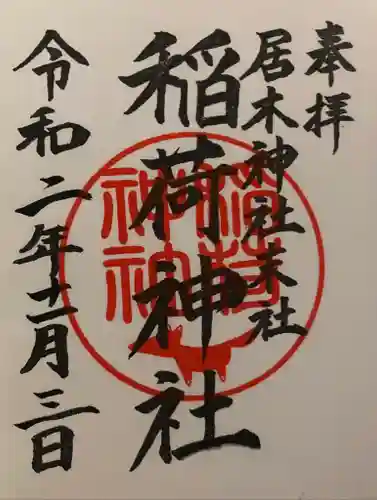 奉拝
居木神社末社
稲荷神社
令和二年十一月三日